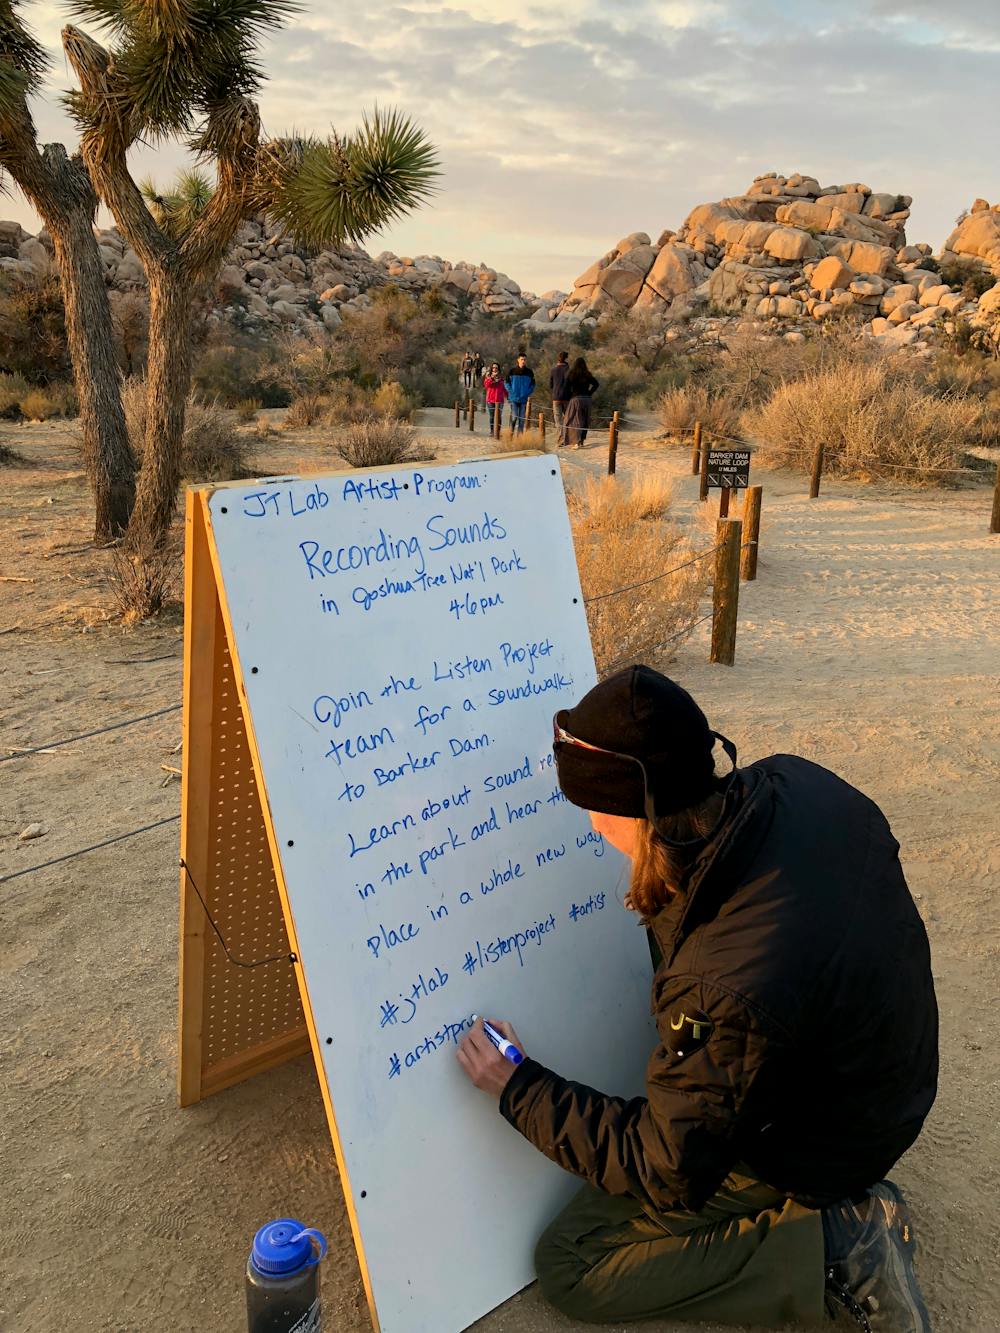 JT Lab Artist Program:
Recording Sounds
in Joshua Tree Nat'l Park
4-6pm
Join the Listen Project
team for a soundwalk
to Barker Dam.
Learn about sound re
in the park and hear th
place in a whole new way
#jtlab #listenproject #artist
#artistpro
BARKER DAM
NATURE LOOP
JT